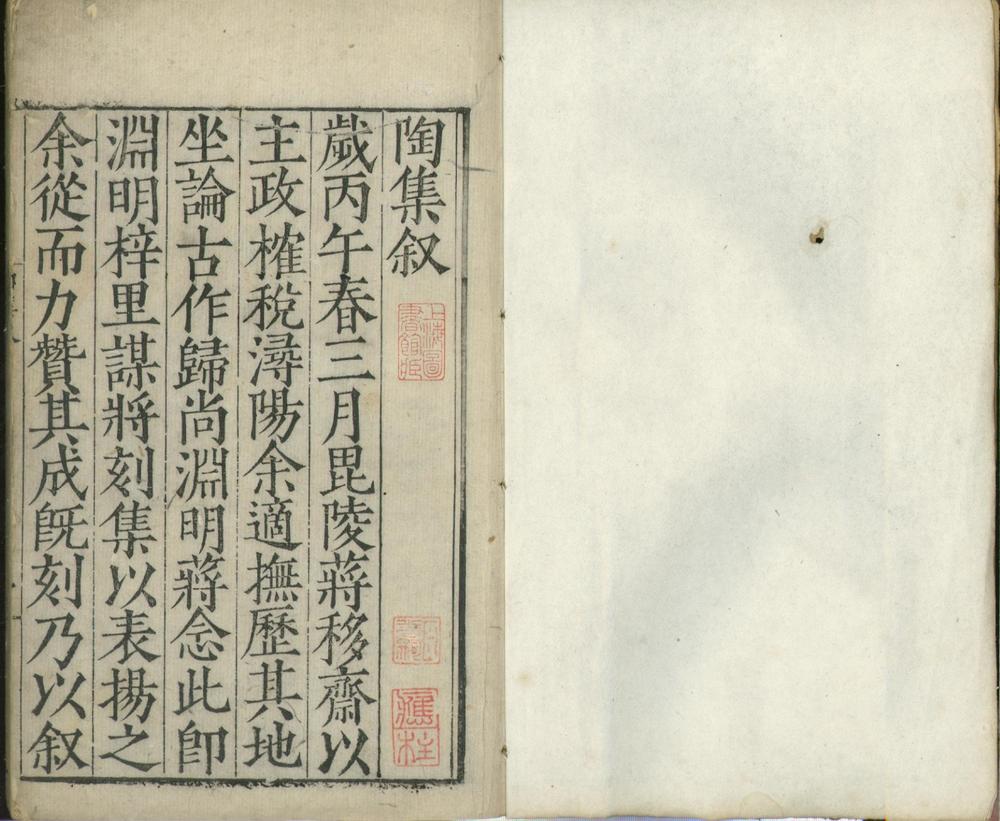 陶集叙
上海圖
書館藏
歲丙午春三月毘陵蔣移齋以
主政榷稅潯陽余適撫歷其地
坐論古作歸尚淵明蔣念此卽
淵明梓里謀將刻集以表揚之
余從而力贊其成旣刻乃以叙